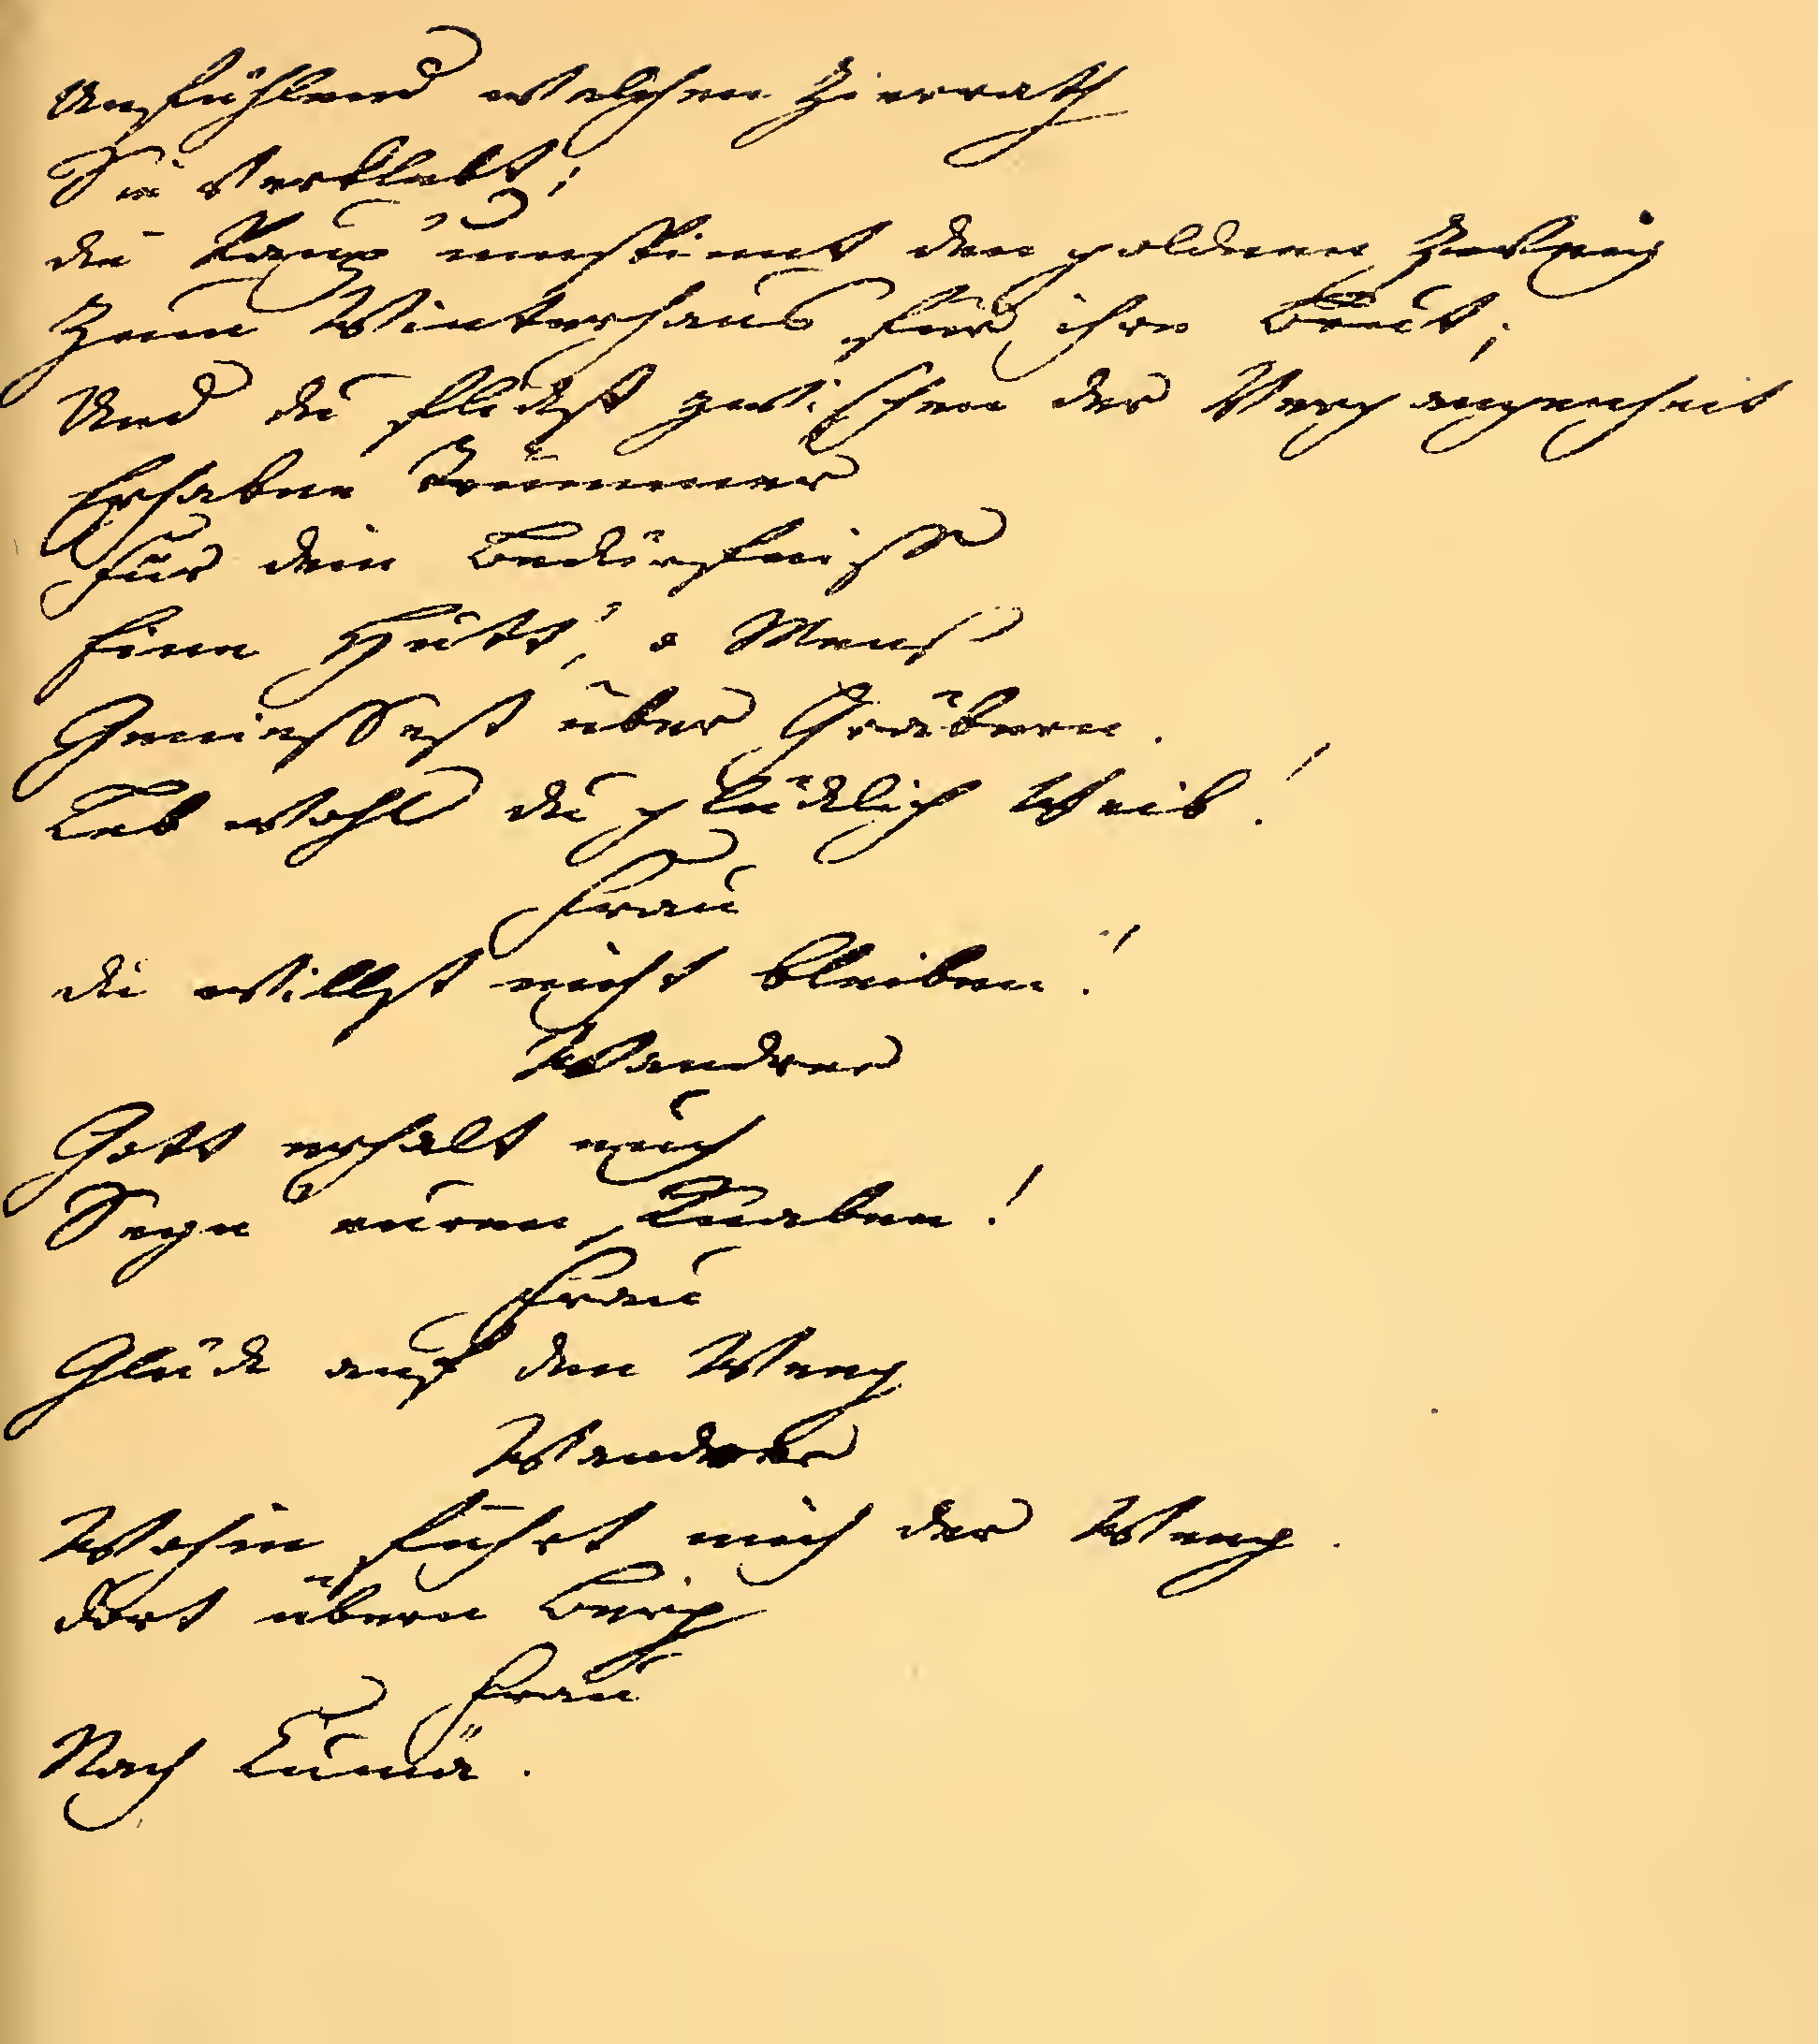 Unfühlend welchen Zierrath
Sie verklebt;
die Raup' umspinnt den goldnen Zweig
Zum Winterhaus für ihre Brut;
Und du flickst zwischen der Vergangenheit
Erhabne Trümmer
Für dein Bedürfniss
Eine Hütt', o Mensch
Geniessest über Gräbern.
Leb wohl du glücklich Weib!
Frau
du willst nicht bleiben!
Wandrer
Gott erhalt euch
Segn' euren Knaben!
Frau
Glück auf den Weeg
Wandrer
Wohin führt mich der Weeg.
dort übern Berg
Frau
Nach Cumä.